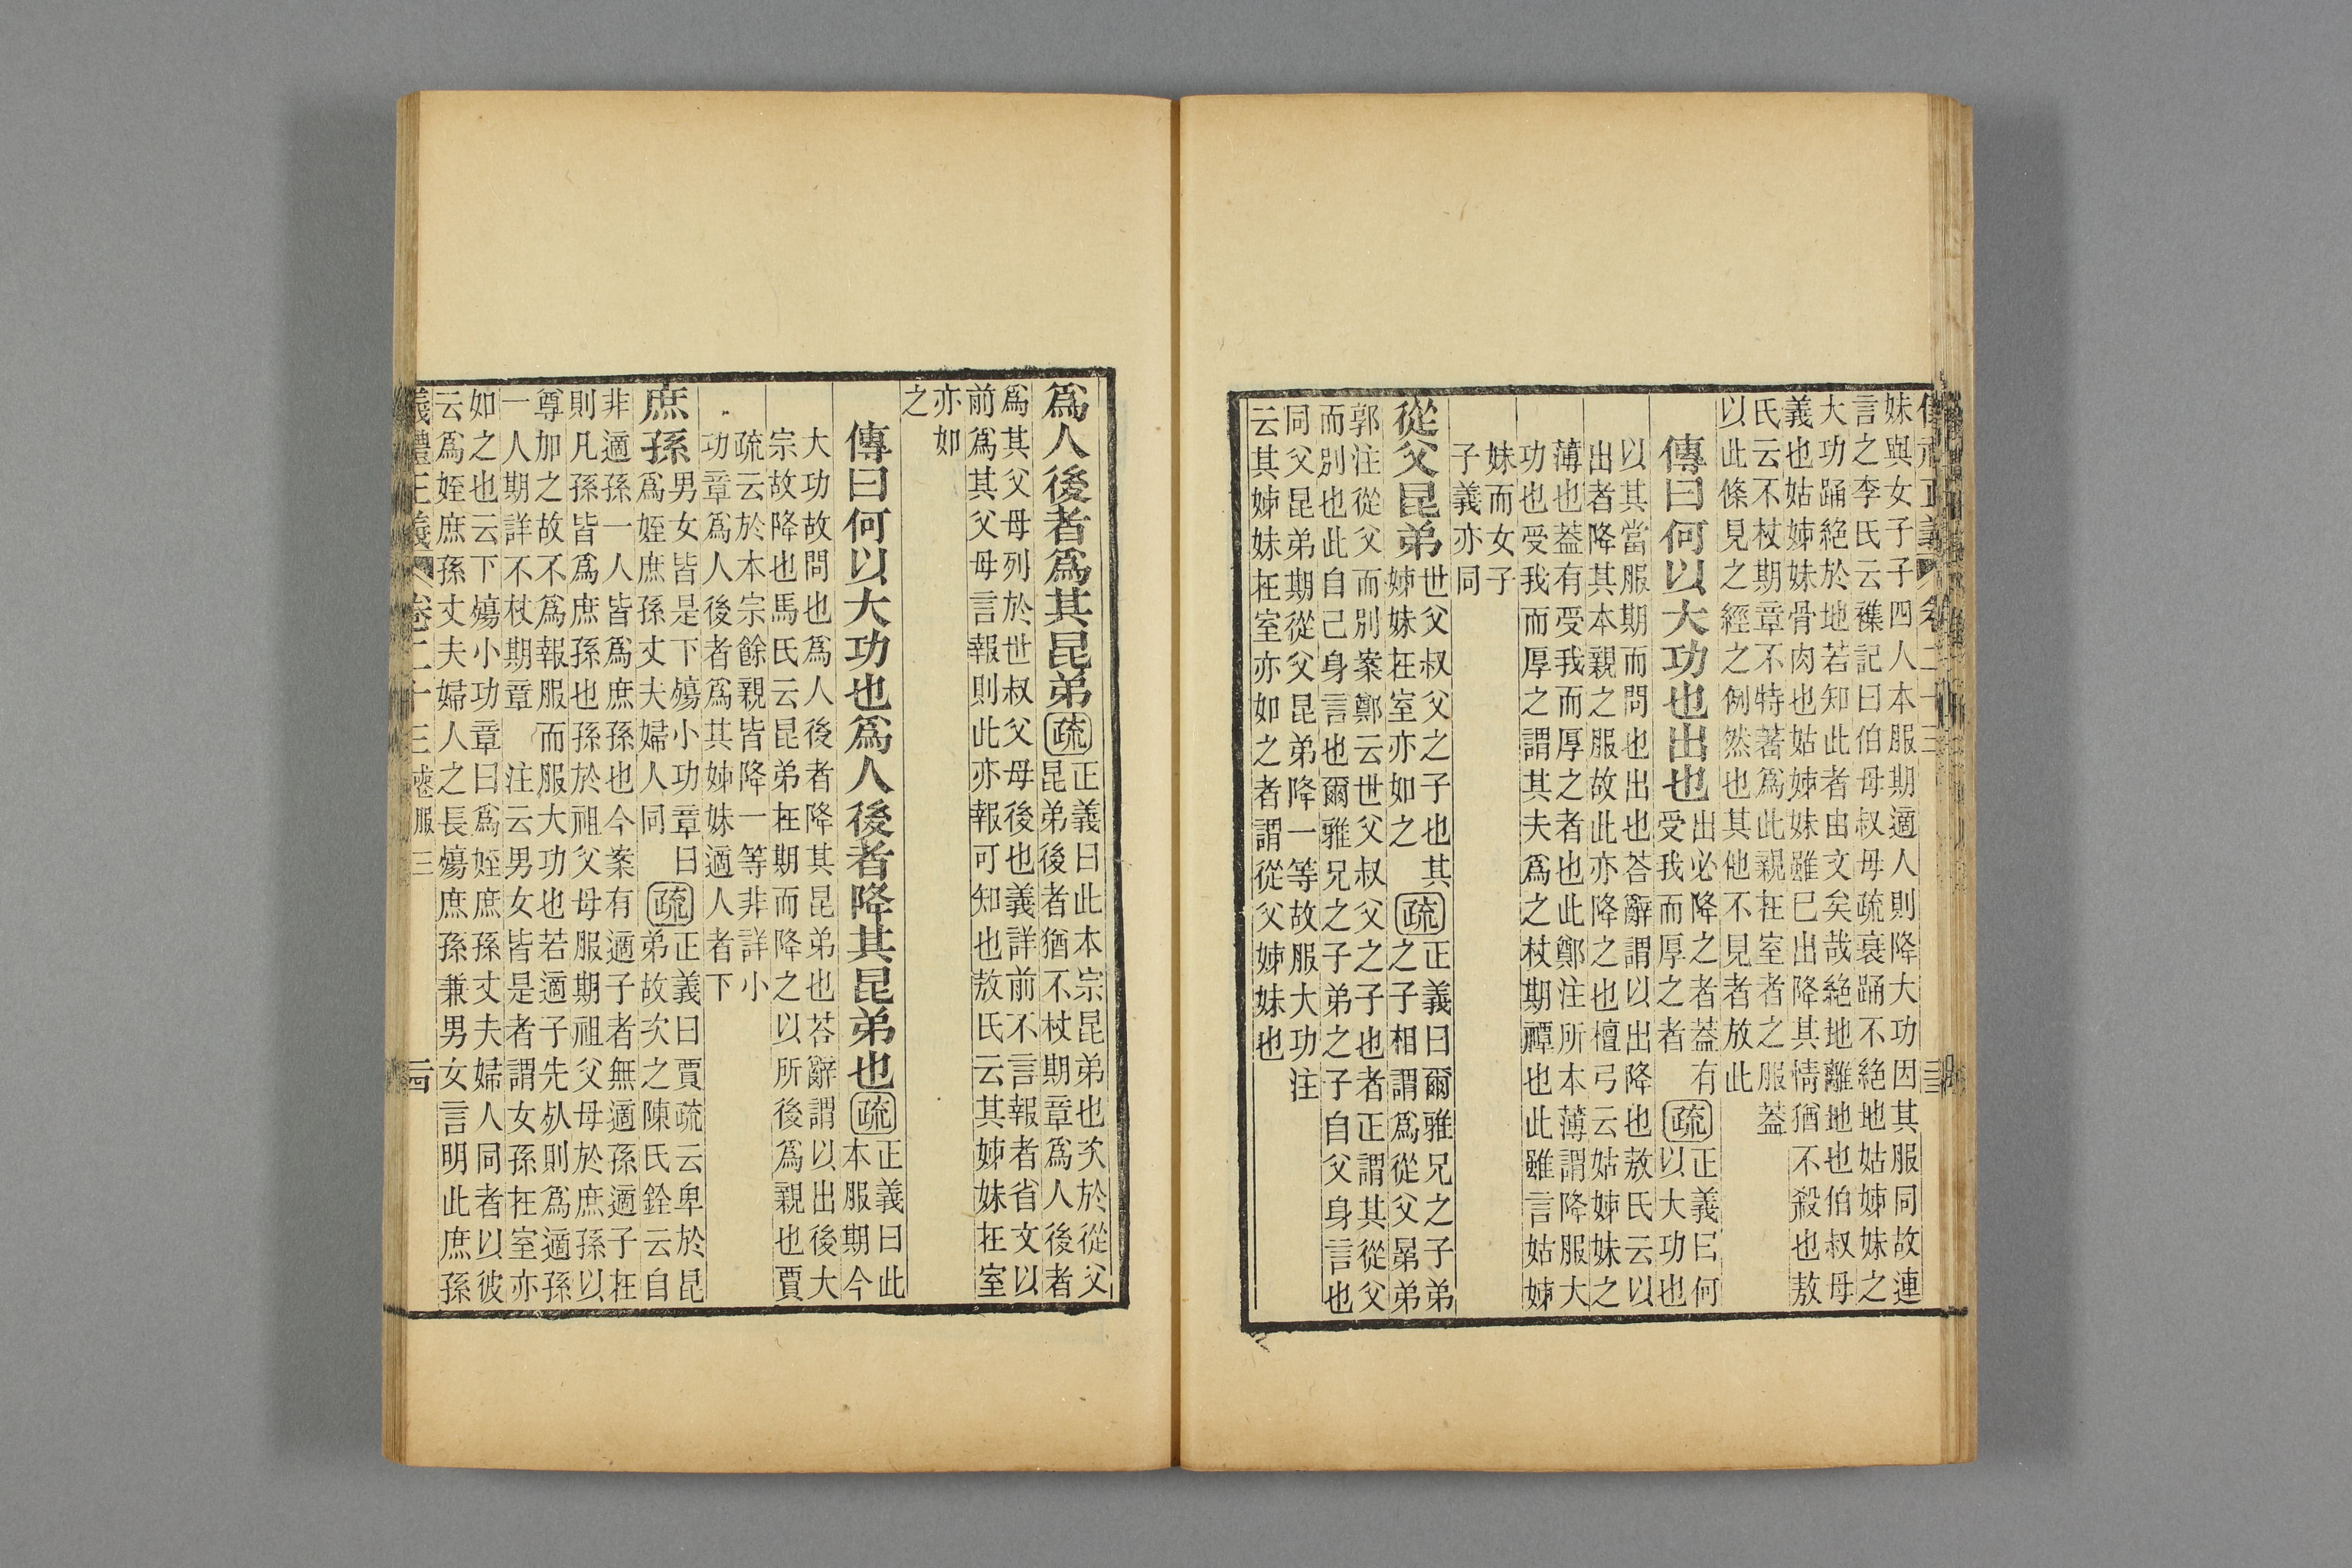 妹與女子子四人本服期適人則降大功因其服同故連
言之李氏云襍記曰伯母叔母疏衰踊不絕地姑姊妹之
大功踊絕於地若知此者由文矣哉絕地離地也伯叔母
義也姑姊妹骨肉也姑姊妹雖巳出降其情猶不殺也敖
氏云不杖期章不特著爲此親在室者之服葢
以此條見之經之例然也其他不見者放此
傳曰何以大功也出也出必降之者葢有
受我而厚之者疏正義曰何
以大功也
以其當服期而問也出也荅辭謂以出降也敖氏云以
出者降其本親之服故此亦降之也檀弓云姑姊妹之
薄也葢有受我而厚之者也此鄭注所本薄謂降服大
功也受我而厚之謂其夫爲之杖期禫也此雖言姑姊
妹而女子
子義亦同
從父昆弟世父叔父之子也其
姊妹在室亦如之疏正義曰爾雅兄之子弟
之子相謂爲從父晜弟
郭注從父而別案鄭云世父叔父之子也者正謂其從父
而別也此自己身言也爾雅兄之子弟之子自父身言也
同父昆弟期從父昆弟降一等故服大功注
云其姊妹在室亦如之者謂從父姊妹也
爲人後者爲其昆弟疏正義曰此本宗昆弟也次於從父
昆弟後者猶不杖期章爲人後者
爲其父母列於世叔父母後也義詳前不言報者省文以
前爲其父母言報則此亦報可知也敖氏云其姊妹在室
亦如
之
傳曰何以大功也爲人後者降其昆弟也疏正義曰此
本服期今
大功故問也爲人後者降其昆弟也荅辭謂以出後大
宗故降也馬氏云昆弟在期而降之以所後爲親也賈
疏云於本宗餘親皆降一等非詳小
功章爲人後者爲其姊妹適人者下
庶孫男女皆是下殤小功章曰
爲姪庶孫丈夫婦人同疏正義曰賈疏云卑於昆
弟故次之陳氏銓云自
非適孫一人皆爲庶孫也今案有適子者無適孫適子在
則凡孫皆爲庶孫也孫於祖父母服期祖父母於庶孫以
尊加之故不爲報服而服大功也若適子先㱔則爲適孫
一人期詳不杖期章 注云男女皆是者謂女孫在室亦
如之也云下殤小功章曰爲姪庶孫丈夫婦人同者以彼
云爲姪庶孫丈夫婦人之長殤庶孫兼男女言明此庶孫